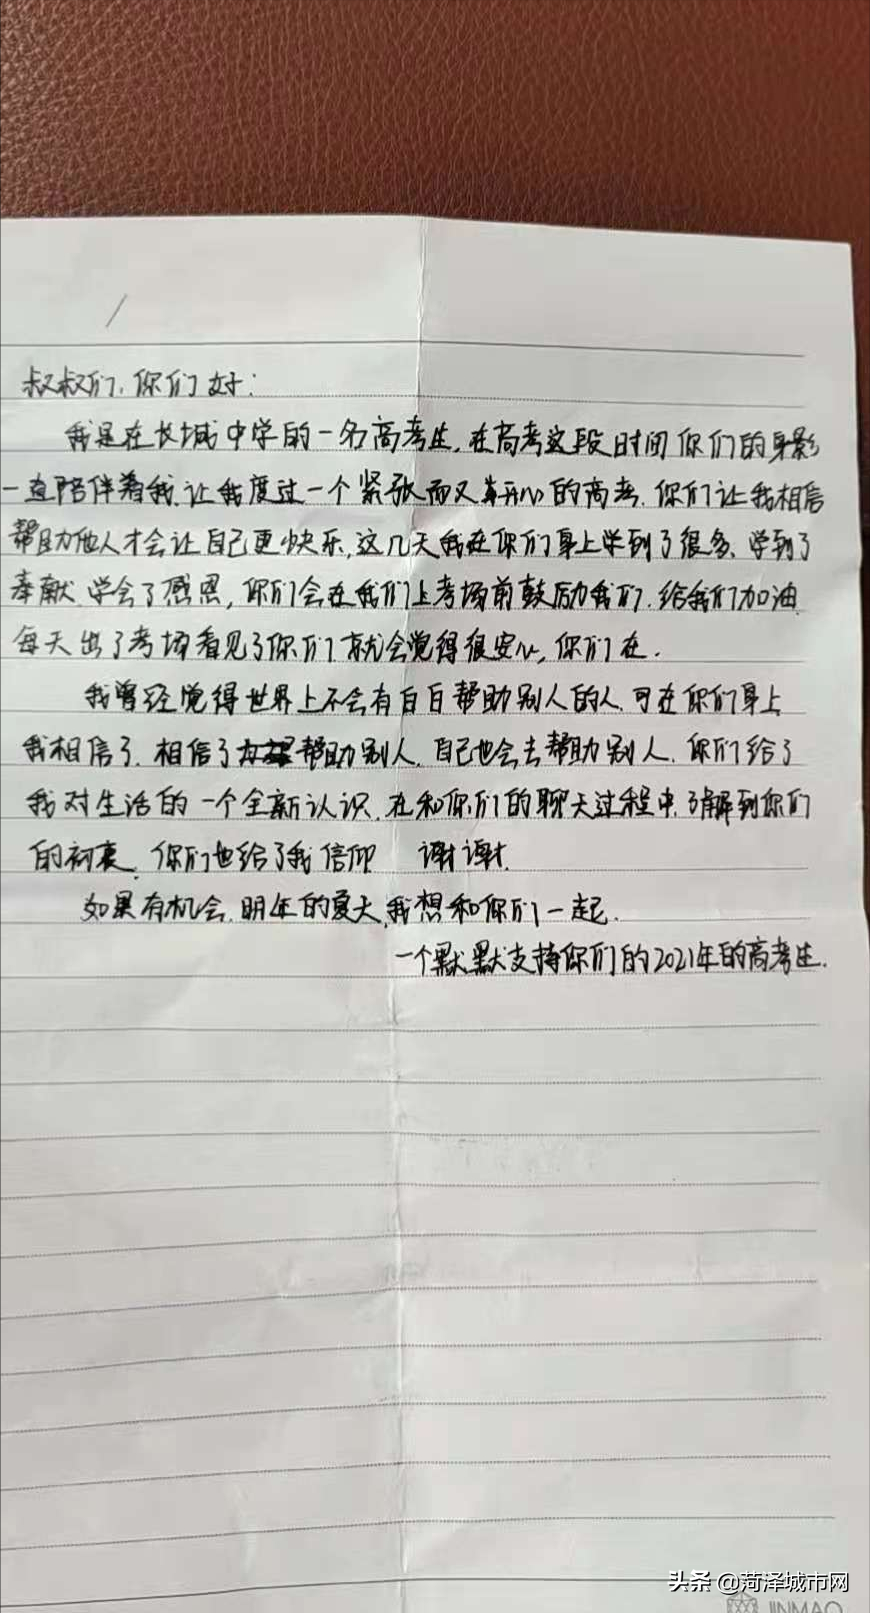 叔叔们,你们好:
我是在长城中学的一名高考生,在高考这段时间你们的身影
一直陪伴着我.让我度过一个紧张而又开心的高考.你们让我相信
帮助他人才会让自己更快乐,这几天我在你们身上学到了很多、学到了
奉献.学会了感恩,你们会在我们上考场前鼓励我们.给我们加油.
每天出了考场看见了你们就会觉得很安心,你们在.
我曾经觉得世界上不会有白白帮助别人的人.可在你们身上
我相信了.相信了帮助别人.自己也会去帮助别人.你们给了
我对生活的一个全新认识.在和你们的聊天过程中.了解到你们
的初衷.你们也给了我信仰 谢谢.
如果有机会.明年的夏天,我想和你们一起.
一个默默支持你们的2021年的高考生.
头条 @菏泽城市网
JINMAO